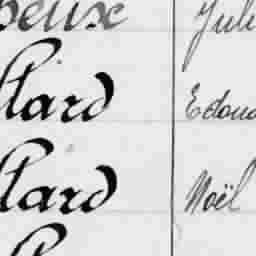 peux Juli
llard Edoua
llard Noël